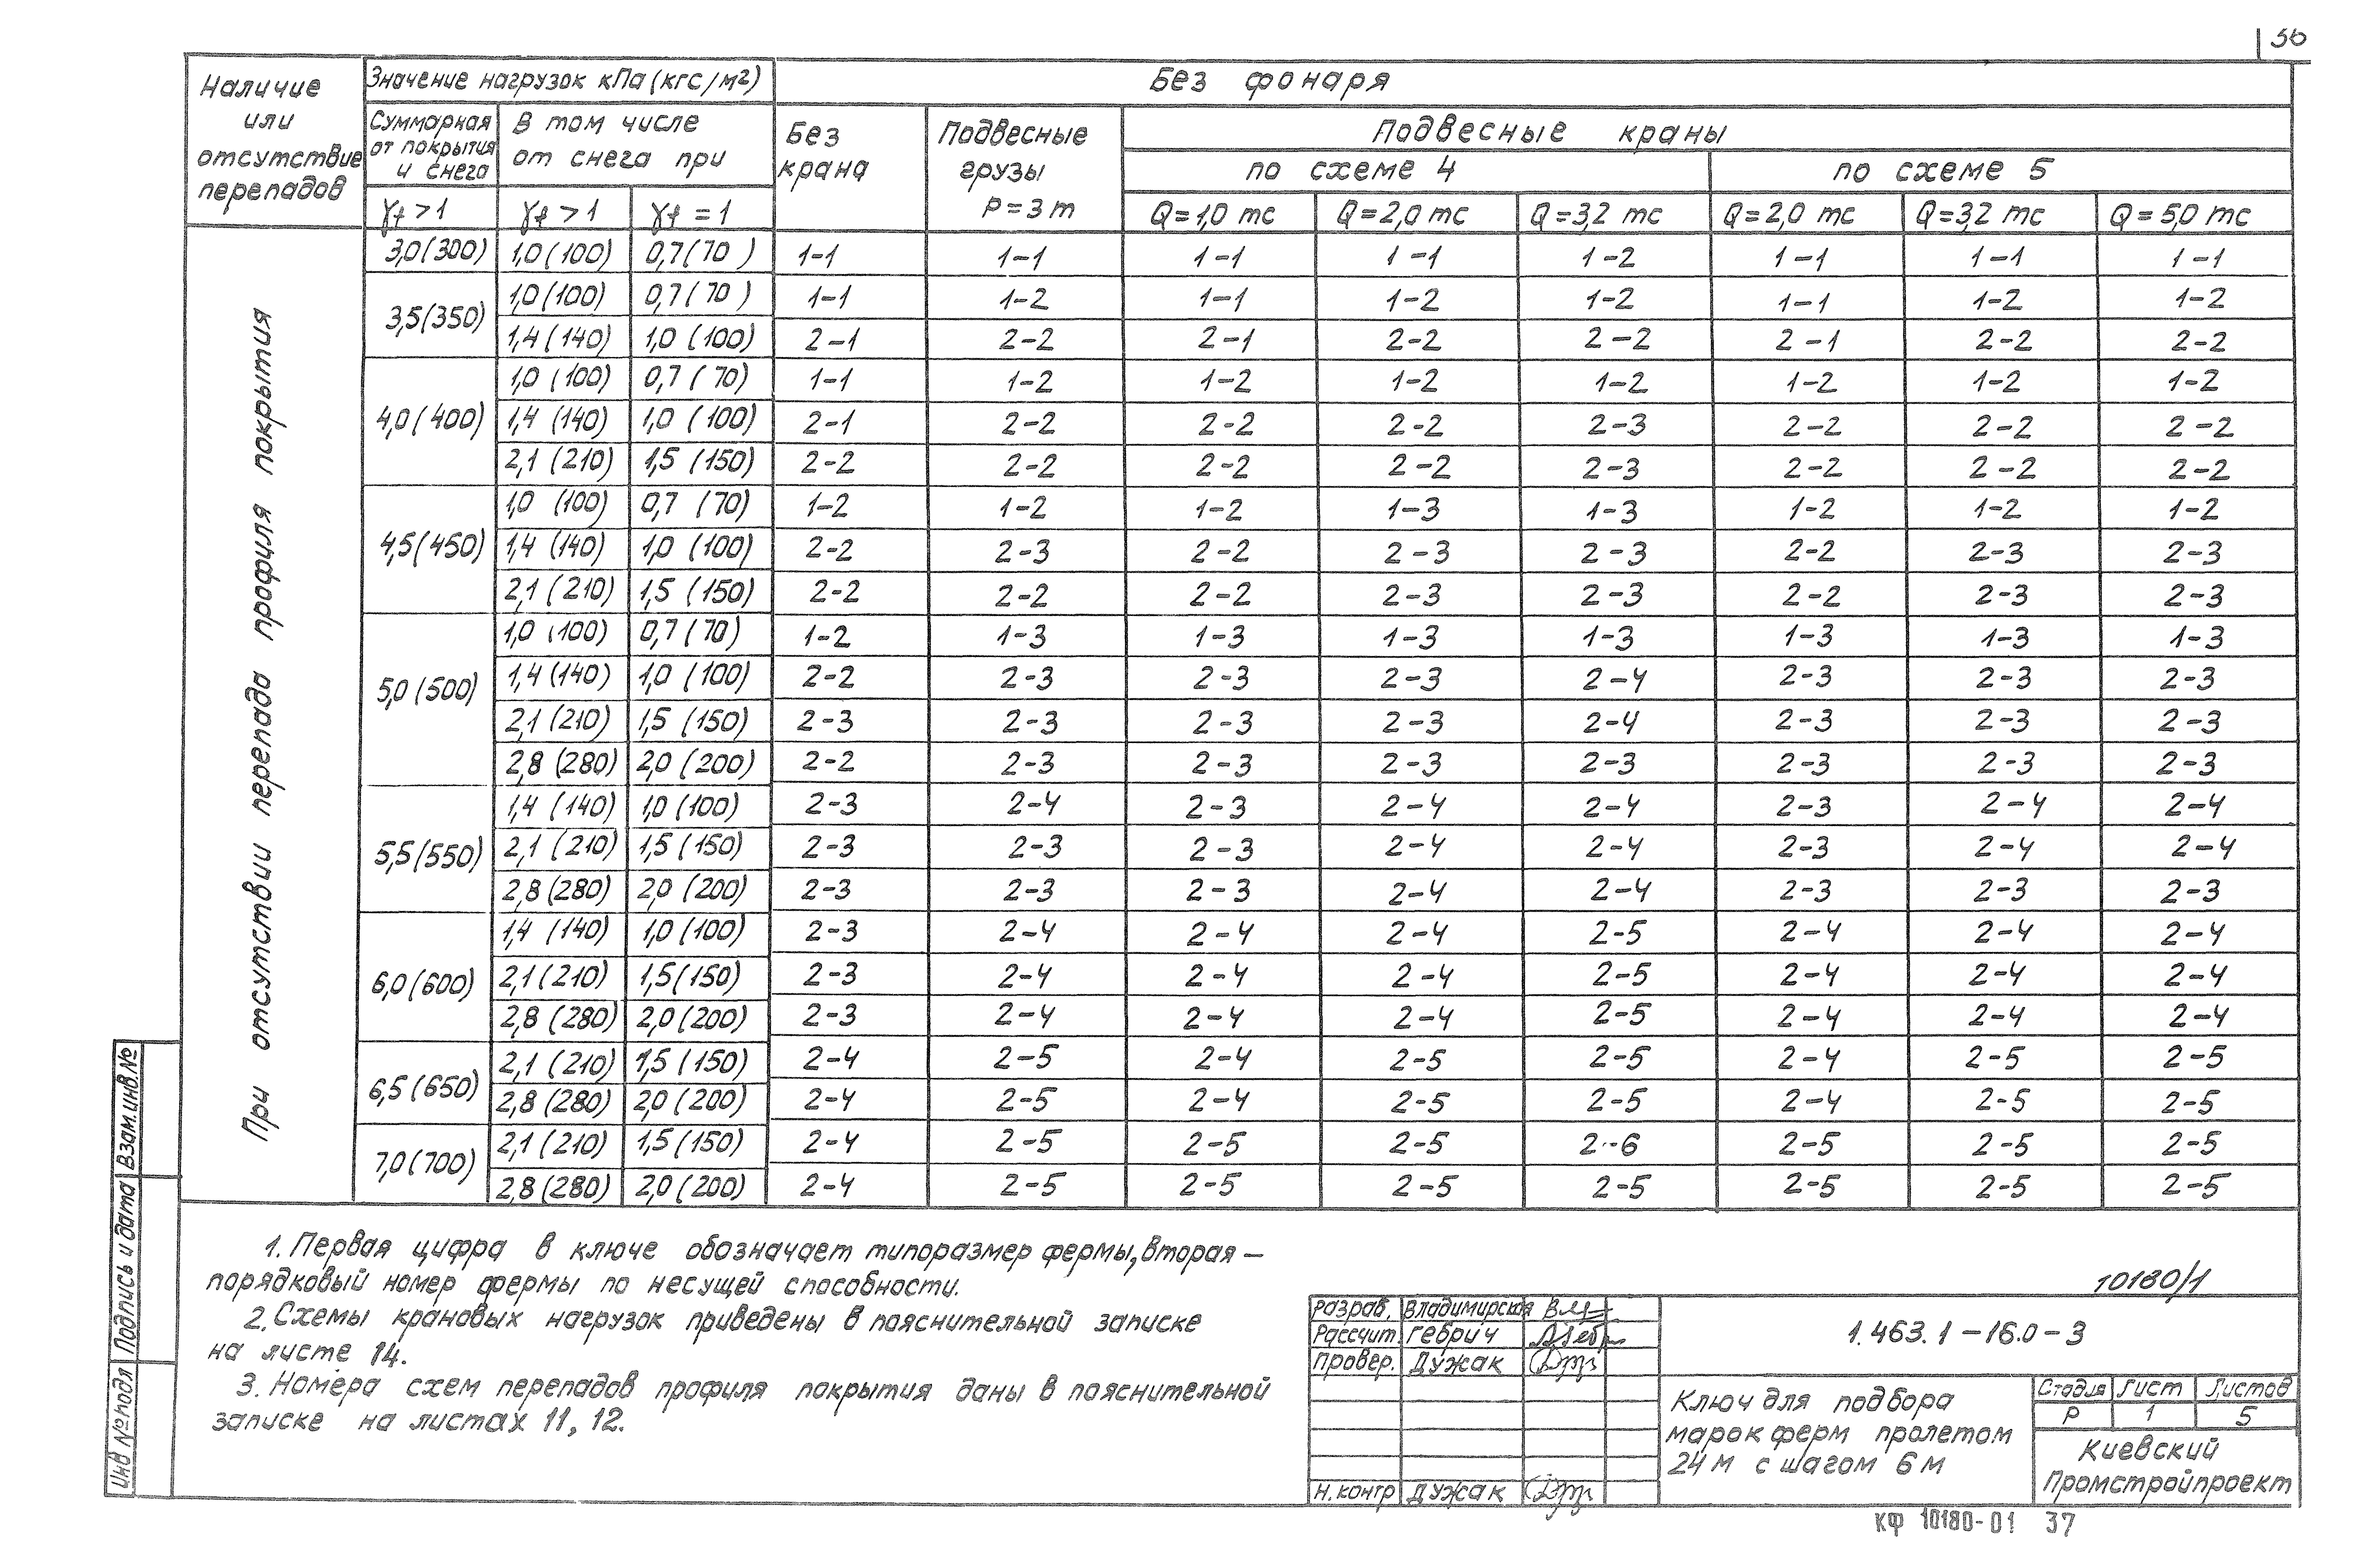 36
Наличие или отсутствие перепадов
Значение нагрузок кПа (кгс/м²)
Без фонаря
Суммарная от покрытия и снега
В том числе от снега при
Без крана
Подвесные грузы P = 3 т
Подвесные краны
по схеме 4
по схеме 5
γf > 1 γf > 1 γf = 1
Q = 1,0 тс Q = 2,0 тс Q = 3,2 тс Q = 2,0 тс Q = 3,2 тс Q = 5,0 тс
При отсутствии перепада профиля покрытия
3,0 (300) 1,0 (100) 0,7 (70) 1-1 1-1 1-1 1-1 1-2 1-1 1-1 1-1
3,5 (350) 1,0 (100) 0,7 (70) 1-1 1-2 1-1 1-2 1-2 1-1 1-2 1-2
1,4 (140) 1,0 (100) 2-1 2-2 2-1 2-2 2-2 2-1 2-2 2-2
4,0 (400) 1,0 (100) 0,7 (70) 1-1 1-2 1-2 1-2 1-2 1-2 1-2 1-2
1,4 (140) 1,0 (100) 2-1 2-2 2-2 2-2 2-3 2-2 2-2 2-2
2,1 (210) 1,5 (150) 2-2 2-2 2-2 2-2 2-3 2-2 2-2 2-2
4,5 (450) 1,0 (100) 0,7 (70) 1-2 1-2 1-2 1-3 1-3 1-2 1-2 1-2
1,4 (140) 1,0 (100) 2-2 2-3 2-2 2-3 2-3 2-2 2-3 2-3
2,1 (210) 1,5 (150) 2-2 2-2 2-2 2-3 2-3 2-2 2-3 2-3
5,0 (500) 1,0 (100) 0,7 (70) 1-2 1-3 1-3 1-3 1-3 1-3 1-3 1-3
1,4 (140) 1,0 (100) 2-2 2-3 2-3 2-3 2-4 2-3 2-3 2-3
2,1 (210) 1,5 (150) 2-3 2-3 2-3 2-3 2-4 2-3 2-3 2-3
2,8 (280) 2,0 (200) 2-2 2-3 2-3 2-3 2-3 2-3 2-3 2-3
5,5 (550) 1,4 (140) 1,0 (100) 2-3 2-4 2-3 2-4 2-4 2-3 2-4 2-4
2,1 (210) 1,5 (150) 2-3 2-3 2-3 2-4 2-4 2-3 2-4 2-4
2,8 (280) 2,0 (200) 2-3 2-3 2-3 2-4 2-4 2-3 2-3 2-3
6,0 (600) 1,4 (140) 1,0 (100) 2-3 2-4 2-4 2-4 2-5 2-4 2-4 2-4
2,1 (210) 1,5 (150) 2-3 2-4 2-4 2-4 2-5 2-4 2-4 2-4
2,8 (280) 2,0 (200) 2-3 2-4 2-4 2-4 2-5 2-4 2-4 2-4
6,5 (650) 2,1 (210) 1,5 (150) 2-4 2-5 2-4 2-5 2-5 2-4 2-5 2-5
2,8 (280) 2,0 (200) 2-4 2-5 2-4 2-5 2-5 2-4 2-5 2-5
7,0 (700) 2,1 (210) 1,5 (150) 2-4 2-5 2-5 2-5 2-6 2-5 2-5 2-5
2,8 (280) 2,0 (200) 2-4 2-5 2-5 2-5 2-5 2-5 2-5 2-5
1. Первая цифра в ключе обозначает типоразмер фермы, вторая –
порядковый номер фермы по несущей способности.
2. Схемы крановых нагрузок приведены в пояснительной записке
на листе 14.
3. Номера схем перепадов профиля покрытия даны в пояснительной
записке на листах 11, 12.
Инв № подл Подпись и дата Взам. инв. №
10180/1
Разраб. Владимирская
Рассчит. Гебрич
Провер. Дужак
Н. контр Дужак
1.463.1-16.0-3
Ключ для подбора
марок ферм пролетом
24 м с шагом 6 м
Стадия Лист Листов
Р 1 5
Киевский
Промстройпроект
КФ 10180-01 37